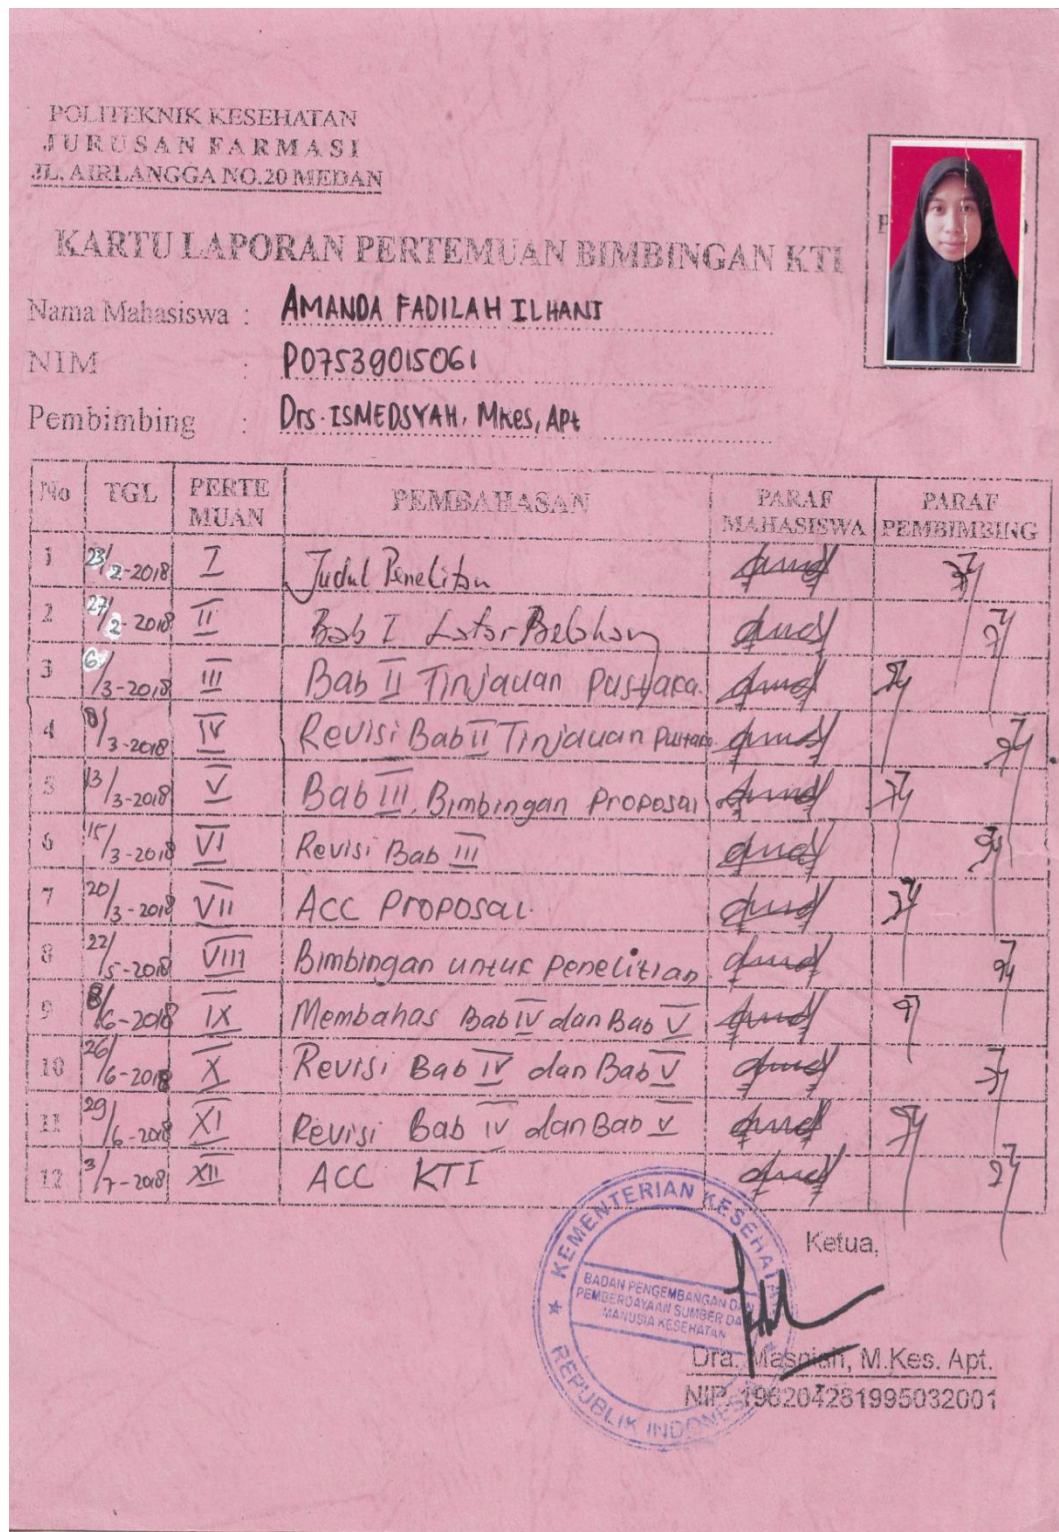 POLITEKNIK KESEHATAN
JURUSAN FARMASI
JL. AIRLANGGA NO.20 MEDAN
KARTU LAPORAN PERTEMUAN BIMBINGAN KTI
Nama Mahasiswa : AMANDA FADILAH ILHANI
NIM : P07539015061
Pembimbing : Drs. ISMEDSYAH, Mkes, Apt
No TGL PERTE MUAN PEMBAHASAN PARAF MAHASISWA PARAF PEMBIMBING
1 23/2-2018 I Judul Penelitian
2 27/2-2018 II Bab I Latar Belakang
3 6/3-2018 III Bab II Tinjauan Pustaka
4 8/3-2018 IV Revisi Bab II Tinjauan Pustaka
5 13/3-2018 V Bab III, Bimbingan Proposal
6 15/3-2018 VI Revisi Bab III
7 20/3-2018 VII ACC Proposal
8 22/5-2018 VIII Bimbingan untuk Penelitian
9 8/6-2018 IX Membahas Bab IV dan Bab V
10 26/6-2018 X Revisi Bab IV dan Bab V
11 29/6-2018 XI Revisi Bab IV dan Bab V
12 3/7-2018 XII ACC KTI
KEMENTERIAN KESEHATAN
BADAN PENGEMBANGAN DAN
PEMBERDAYAAN SUMBER DAYA
MANUSIA KESEHATAN
REPUBLIK INDONESIA
Ketua,
Dra. Masniah, M.Kes. Apt.
NIP. 196204281995032001